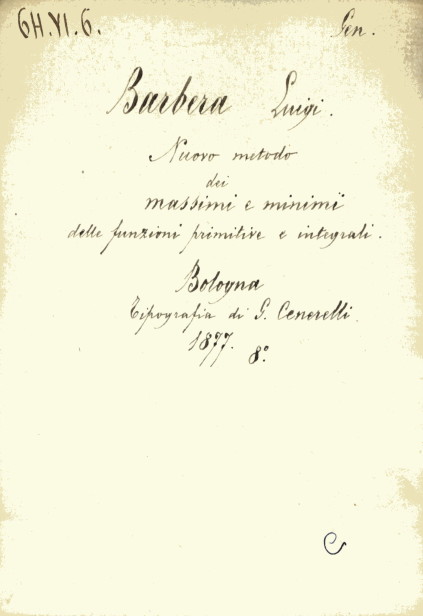 6H.VI.6.
Gen.
Barbera Luigi.
Nuovo metodo
dei
massimi e minimi
delle funzioni primitive e integrali.
Bologna
Tipografia di G. Cenerelli
1877. 8º.
C